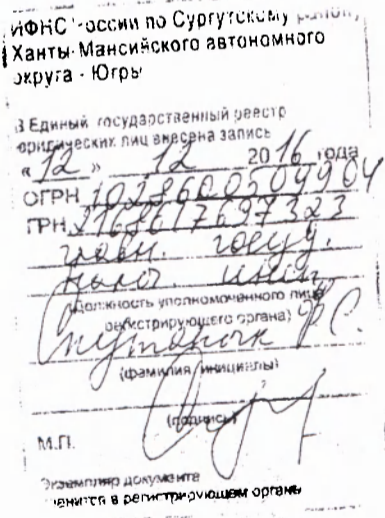 ИФНС России по Сургутскому району
Ханты-Мансийского автономного
округа - Югры
В Единый государственный реестр
юридических лиц внесена запись
« 12 » 12 2016 года
ОГРН 1028600509904
ГРН 2168617697323
главн. госуд.
налог. инсп.
(должность уполномоченного лица
регистрирующего органа)
Ф.С.
(фамилия, инициалы)
(подпись)
М.П.
Экземпляр документа
хранится в регистрирующем органе